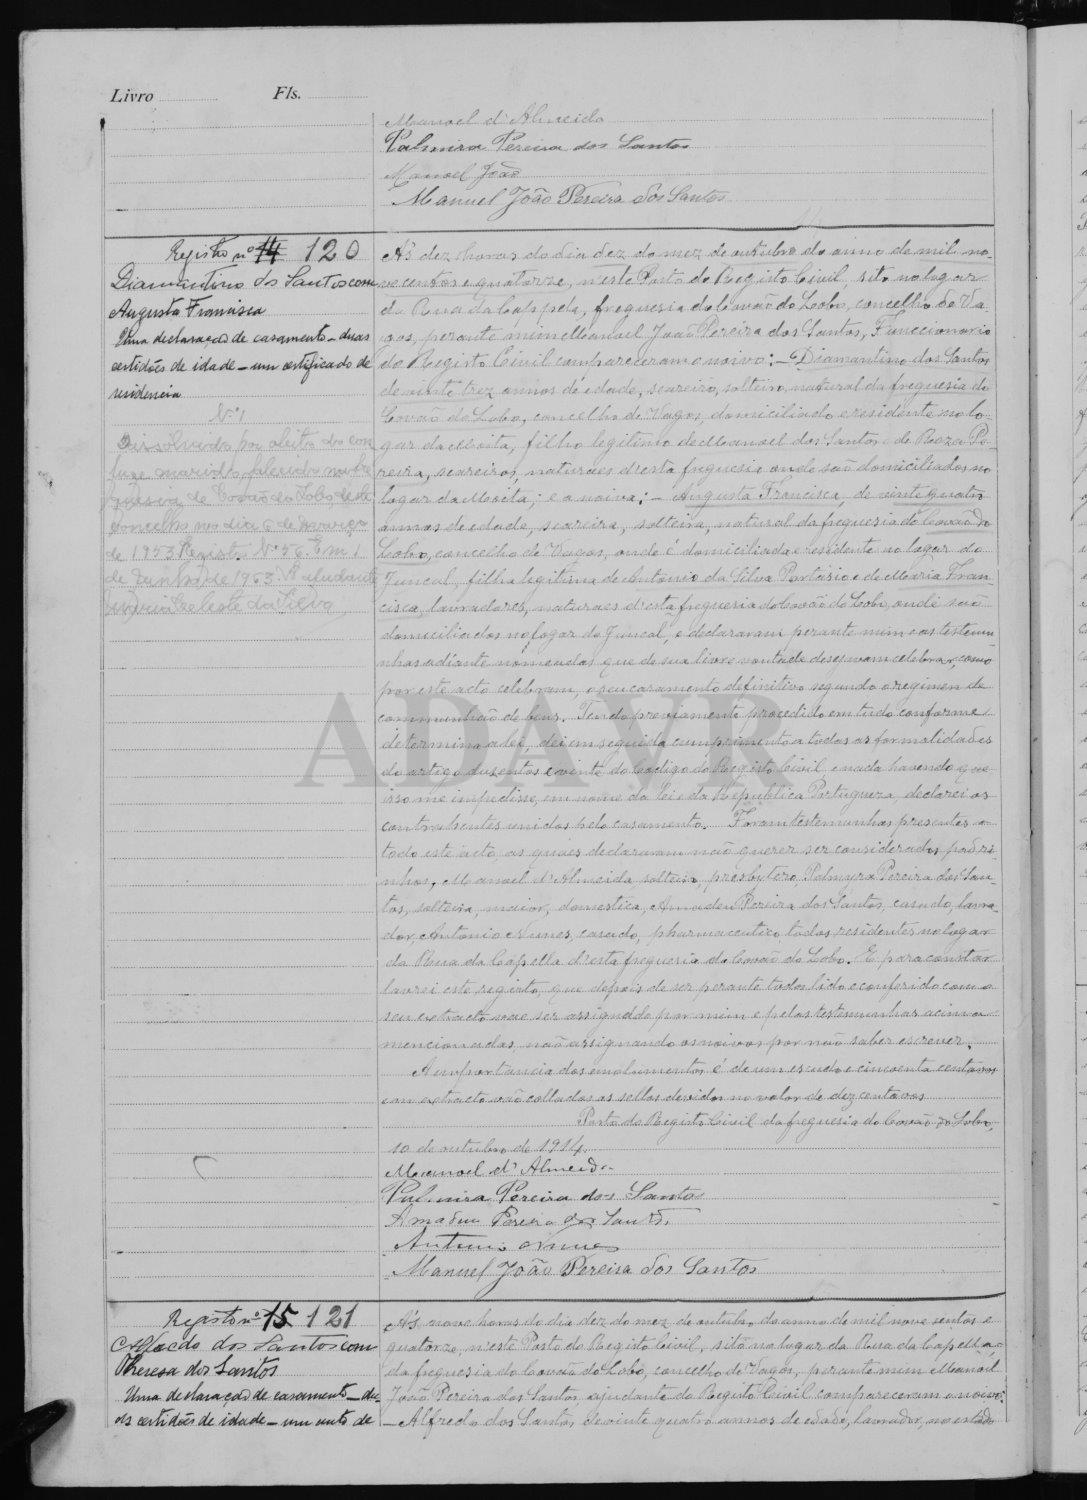 Livro Fls.
Manoel d'Almeida
Palmira Pereira dos Santos
Manoel João
Manuel João Pereira dos Santos
Registo nº 14 120
Diamantino dos Santos com
Augusta Francisca
Uma declaração de casamento - duas
certidões de idade - um certificado de
residencia
Nº 1
Dissolvido por obito do con
juge marido, falecido na fre
guesia de Covão do Lobo, deste
concelho, no dia 6 de
de 1953 Registo Nº 56. Em 1
de Junho de 1963. A ajudante
Celeste da
Ás dez horas do dia dez do mez de outubro do anno de mil no-
vecentos e quatorze, n'este Posto do Registo Civil, sito no logar
da Rua da Cappela, freguesia do Covão do Lobo, concelho de Va-
gos, perante mim Manoel João Pereira dos Santos, Funccionario
do Registo Civil compareceram o noivo: - Diamantino dos Santos
de vinte trez annos de edade, seareiro, solteiro, natural da freguesia do
Covão do Lobo, concelho de Vagos, domiciliado e residente no lo-
gar da Moita, filho legitimo de Manoel dos Santos e de Roza Pe-
reira, seareiros, naturaes d'esta freguesia onde são domiciliados no
logar da Moita; e a noiva: - Augusta Francisca, de vinte quatro
annos de edade, seareira, solteira, natural da freguesia do Covão do
Lobo, concelho de Vagos, onde é domiciliada e residente no logar do
Juncal, filha legitima de Antonio da Silva Portasio e de Maria Fran-
cisca, lavradores, naturaes d'esta freguesia do Covão do Lobo, onde são
domiciliados no logar do Juncal, e declararam perante mim e as testemu-
nhas adiante nomeadas que de sua livre vontade desejavam celebrar, como
por este acto celebram, o seu casamento definitivo segundo o regimen de
communhão de bens. Tendo previamente procedido em tudo conforme
determina a lei, dei em seguida cumprimento a todas as formalidades
do artigo duzentos e vinte do Codigo do Registo Civil, e nada havendo que
isso me impedisse, em nome da Lei e da Republica Portugueza, declarei os
contrahentes unidos pelo casamento. Foram testemunhas presentes a
todo este acto, as quaes declararam não querer ser considerados padri-
nhos, Manoel d'Almeida, solteiro, presbytero, Palmyra Pereira dos San-
tos, solteira, maior, domestica, Amadeu Pereira dos Santos, casado, lavra-
dor, Antonio Nunes, casado, pharmaceutico, todos residentes no logar
da Rua da Capella d'esta freguesia do Covão do Lobo. E para constar
lavrei este registo, que depois de ser perante todos lido e conferido com o
seu extracto vae ser assignado por mim e pelas testemunhas acima
mencionadas, não assignando os noivos por não saber escrever.
A importancia dos emolumentos é de um escudo e cincoenta centavos
com extracto vão collados os sellos devidos no valor de dez centavos
Posto do Registo Civil da freguesia do Covão do Lobo,
10 de outubro de 1914.
Manoel d'Almeida
Palmira Pereira dos Santos
Amadeu Pereira dos Santos
Antonio Nunes
Manuel João Pereira dos Santos
Registo nº 15 121
Alfredo dos Santos com
Theresa dos Santos
Uma declaração de casamento - du-
as certidões de idade - um auto de
Ás nove horas do dia dez do mez de outubro do anno de mil nove centos e
quatorze, n'este Posto do Registo Civil, sito no logar da Rua da Capella,
da freguesia do Covão do Lobo, concelho de Vagos, perante mim Manoel
João Pereira dos Santos, ajudante do Registo Civil compareceram o noivo:
- Alfredo dos Santos, de vinte quatro annos de edade, lavrador, no estado
ADAVR